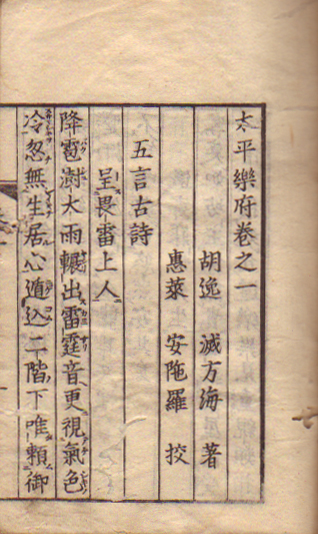 太平樂府卷之一
胡逸 滅方海 著
惠萊 安陁羅 挍
五言古詩
呈畏雷上人
降雹澍大雨轣出雷霆音更視氣色
冷忽無生居心遁込二階下唯賴御